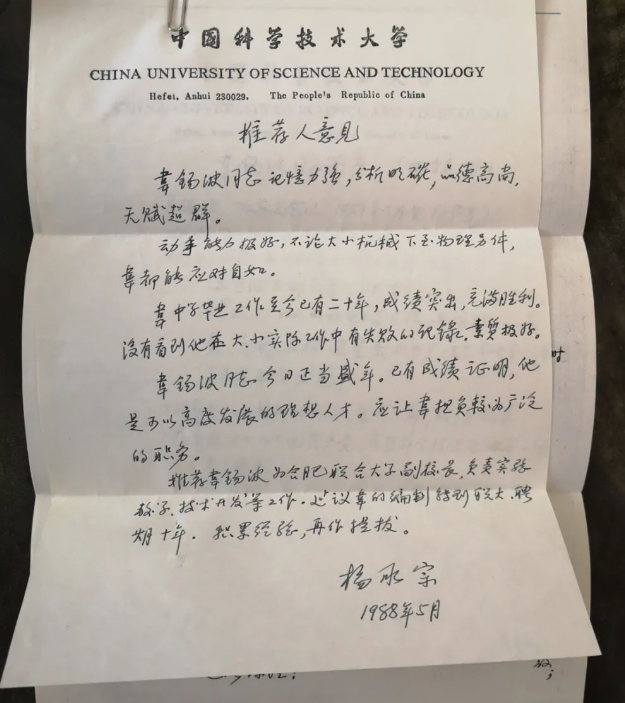 中国科学技术大学
CHINA UNIVERSITY OF SCIENCE AND TECHNOLOGY
Hefei, Anhui 230029. The People's Republic of China
推荐人意见
韋錫波同志记憶力強，分析明確，品德高尚，
天赋超群。
动手能力极好，不论大小机械下至物理另件，
韋都能应对自如。
韋中学毕业工作至今已有二十年，成绩突出，充满胜利。
没有看到他在大、小实际工作中有失败的纪錄，素質极好。
韋錫波同志今日正当盛年。已有成绩证明，他
是可以高度发展的理想人才。应让韋担负較为广泛
的职务。
推荐韋錫波为合肥联合大学副校長，负责实验
教学、技术开发等工作。建议韋的编制转到联大，聘
期十年。积累经验，再作提拔。
杨承宗
1988年5月
时